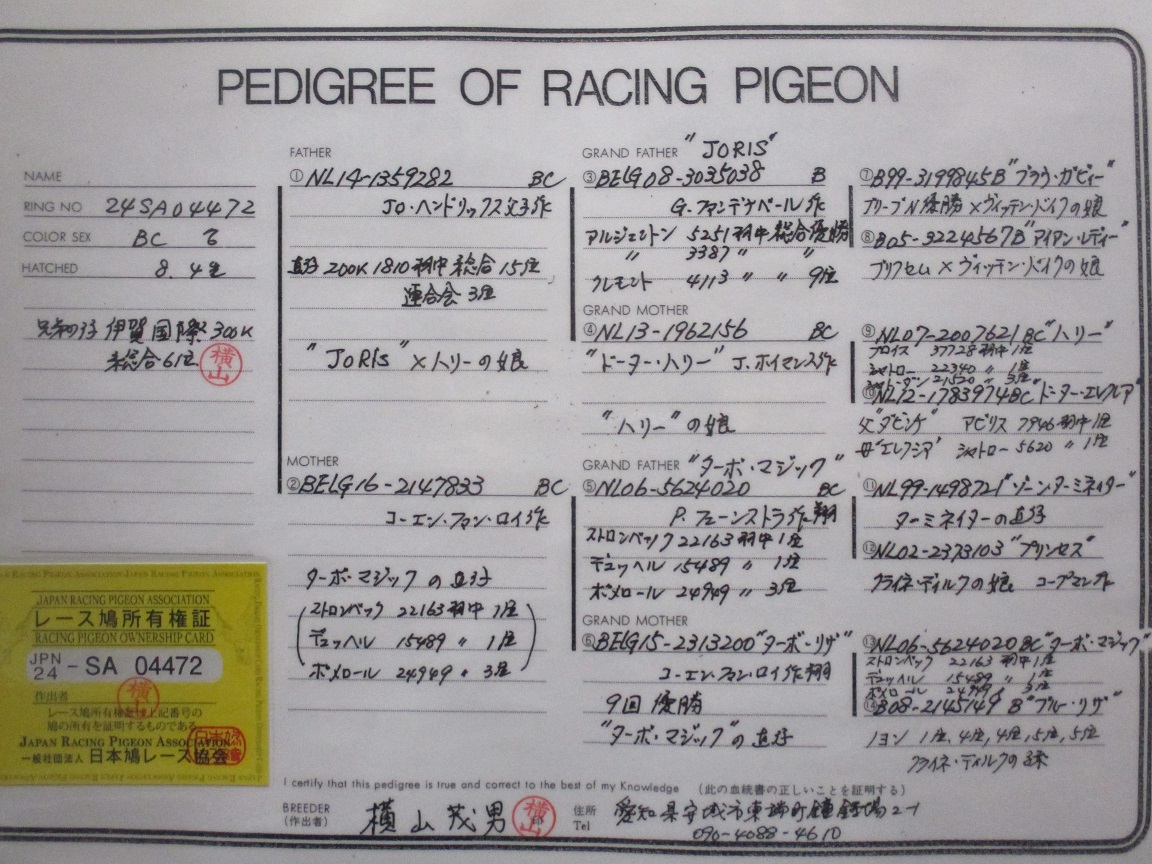 PEDIGREE OF RACING PIGEON
NAME
RING NO 24SA04472
COLOR SEX BC ♂
HATCHED 8.4生
兄弟の子 伊賀国際300K
総合6位 横山
JAPAN RACING PIGEON ASSOCIATION
レース鳩所有権証
RACING PIGEON OWNERSHIP CARD
JPN 24 - SA 04472
作出者 横山
レース鳩所有権者は上記番号の
鳩の所有を証明するものである。
JAPAN RACING PIGEON ASSOCIATION
一般社団法人 日本鳩レース協会
FATHER
①NL14-1359282 BC
JO・ヘンドリックス父子作
直子 200K 1810羽中 総合15位
連合会 3位
"JORIS"×ハリーの娘
MOTHER
②BELG16-2147833 BC
コーエン・ファン・ロイ作
ターボ・マジックの直仔
ストロンベック 22163羽中 1位
デュッヘル 15489 〃 1位
ポメロール 24949 〃 3位
GRAND FATHER "JORIS"
③BELG08-3035038 B
G・ファンデナベール作
アルジェントン 5251羽中 総合優勝
〃 3387 〃 〃
クレモント 4113 〃 〃 9位
GRAND MOTHER
④NL13-1962156 BC
"ドーター・ハリー" J.ホイマンス作
"ハリー"の娘
GRAND FATHER "ターボ・マジック"
⑤NL06-5624020 BC
P.フェーンストラ作翔
ストロンベック 22163羽中 1位
デュッヘル 15489 〃 1位
ポメロール 24949 〃 3位
GRAND MOTHER
⑥BELG15-2313200 "ターボ・リザ"
コーエン・ファン・ロイ作翔
9回 優勝
"ターボ・マジック"の直仔
⑦B99-3199845B "ブラウ・ガビー"
ブリーブN優勝×ヴィッテン・ドイクの娘
⑧B05-3224567B "アイアン・レディー"
プリクセム×ヴィッテン・ドイクの娘
⑨NL07-2007621BC "ハリー"
ブロイス 37728羽中1位
シャトロー 22340 〃 1位
21520 〃 3位
⑩NL12-1783974BC "ドーター・エレクシア"
父"ダビンケ" アビリス 7946羽中1位
母"エレクシア" シャトロー 5620 〃 1位
⑪NL99-1498721 "ゾーン・ターミネイター"
ターミネイターの直仔
⑫NL02-2373103 "プリンセス"
クライネ・ディルクの娘 コープマン作
⑬NL06-5624020BC "ターボ・マジック"
ストロンベック 22163羽中1位
デュッヘル 15489 〃 1位
ポメロール 24949 〃 3位
⑭B08-2145149 B "ブルー・リザ"
ノヨン 1位, 4位, 4位, 5位, 5位
クライネ・ディルクの孫
I certify that this pedigree is true and correct to the best of my Knowledge (此の血統書の正しいことを証明する)
BREEDER
(作出者) 横山茂男 横山
住所 愛知県安城市東端町鐘鋳場2-1
Tel 090-4088-4610